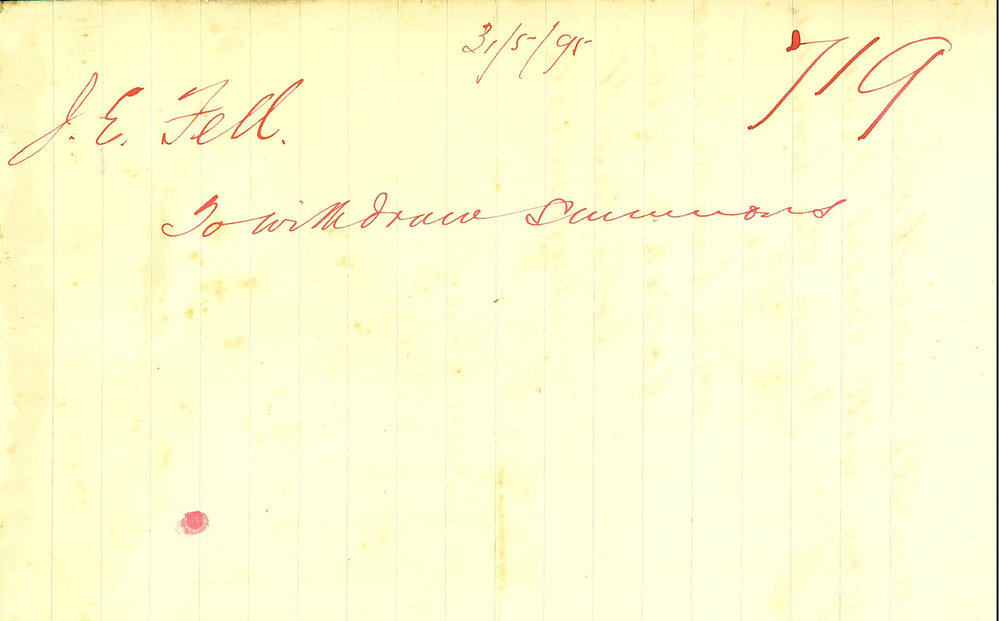 31/5/95
719
J. E. Fell.
To withdraw Summons